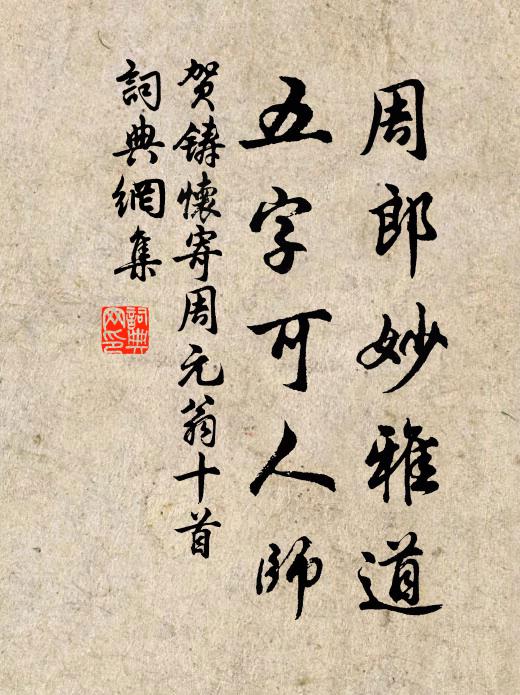 周郎妙雅道
五字可人師
贺鑄懷寄周元翁十首
詞典網集
詞典
网印